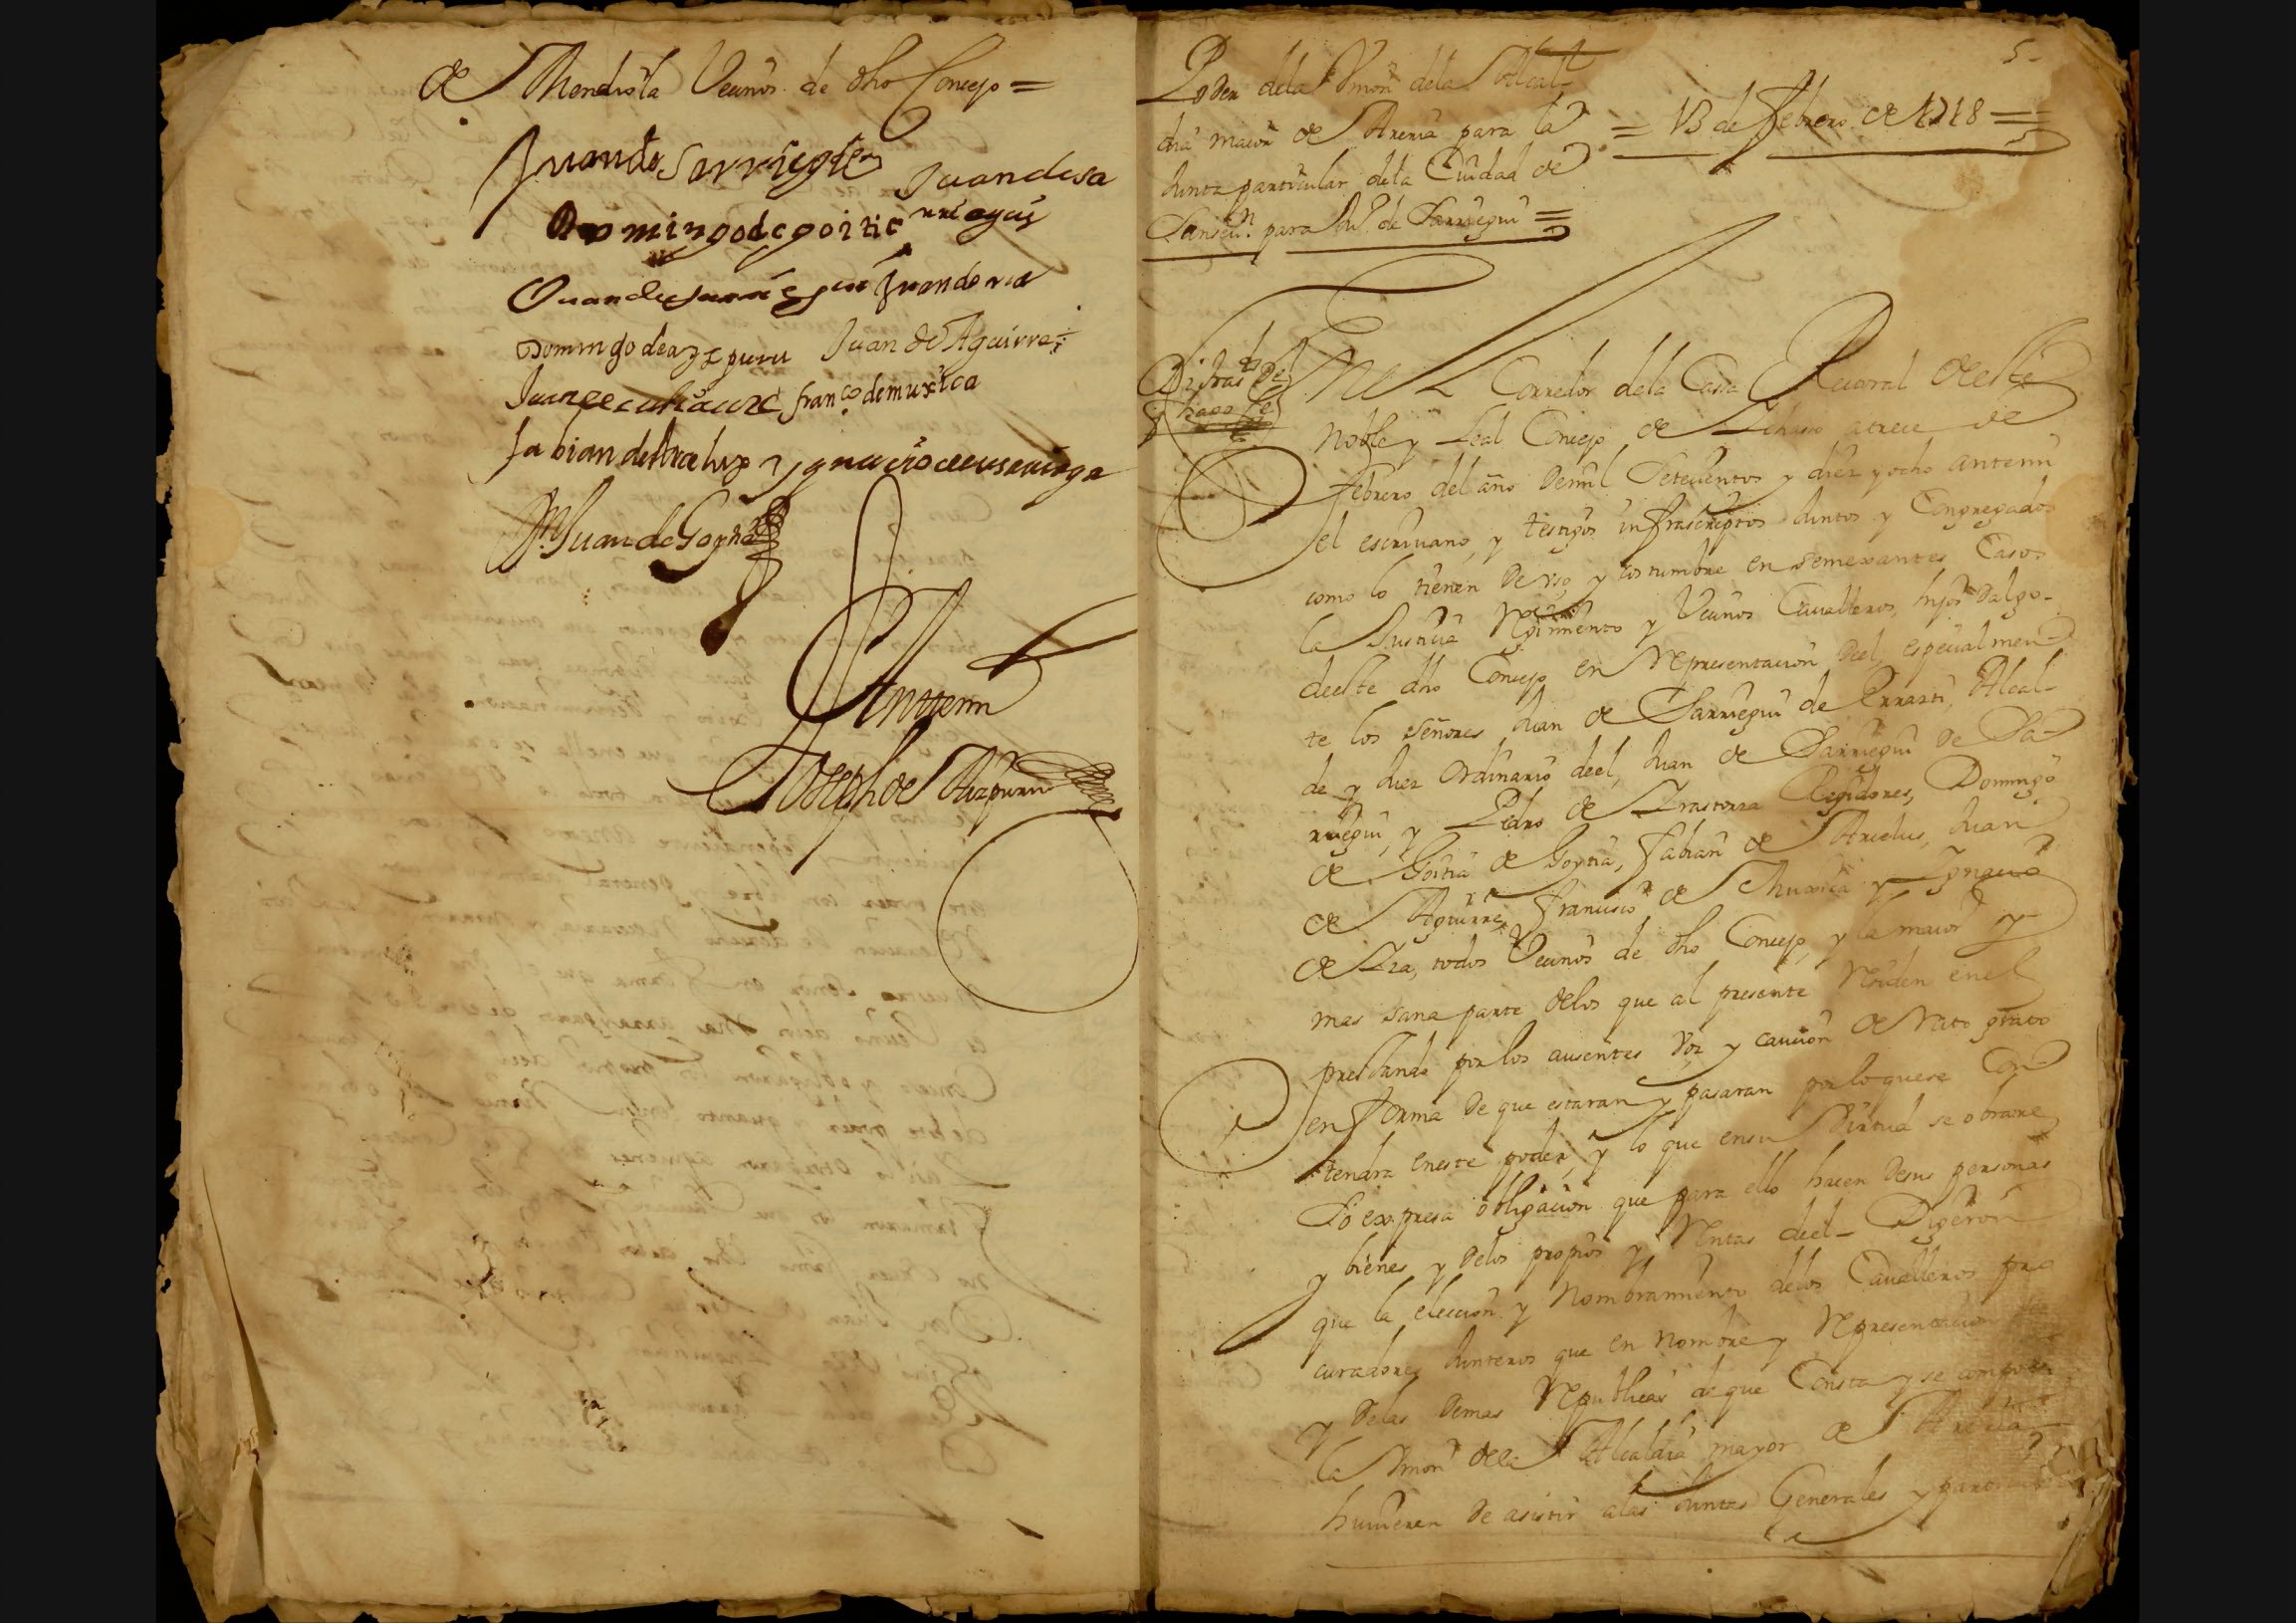 de Mendiola Vecinos de dho Concejo =
Juan de Sarriegui Juan de sa
rriegui
Domingo de goitia
Juan de Sarriegui Juan de
Domingo de azpuru Juan de Aguirre
Juan de franco de muxica
fabian de Arcelus Ygnacio de
Juan de Goytia
Antemi
Joseph de Aizpuru
5
Poder dela Vnion dela Alcal
dia maior de Areria para la
Junta particular dela Ciudad de
Sansevn para Ju. de Sarriegui =
= 13 de febrero de 1718 =
En el Corredor dela Cassa Concejal deeste
noble y Leal Concejo de Ichasso a trece de
febrero del año de mil Setecientos y diez y ocho antemi
el escrivano, y testigos infrascriptos Juntos y Congregados
como lo tienen de vso, y costumbre en semexantes Casos
la Justicia Regimiento y Vecinos Cavalleros hijos dalgo
deeste dho Concejo en representacion deel, especialmen
te los señores Juan de Sarriegui de Errazti, Alcal
de y Juez Ordinario deel, Juan de Sarriegui de Sa
rriegui, y Pedro de Irastorza Regidores, Domingo
de Goitia de Goytia, fabian de Arcelus, Juan
de Aguirre, francisco de Muxica y Ygnacio
de todos Vecinos de dho Concejo, y la maior y
mas sana parte delos que al presente residen enel
prestando por los ausentes voz y caucion de rato grato
en forma de que estaran y pasaran por lo que se Con
tendra eneste poder, y lo que ensu virtud se obrare
So expresa obligacion que para ello hacen desus personas
y bienes y delos propios y rentas deel Digeron
que la eleccion y nombramiento delos Cavalleros pro
curadores Junteros que en nombre y representacion
y delas demas republicas de que Consta y se compone
la Vnion dela Alcaldia mayor de Areria
huvieren de asistir alas Juntas Generales y particulares